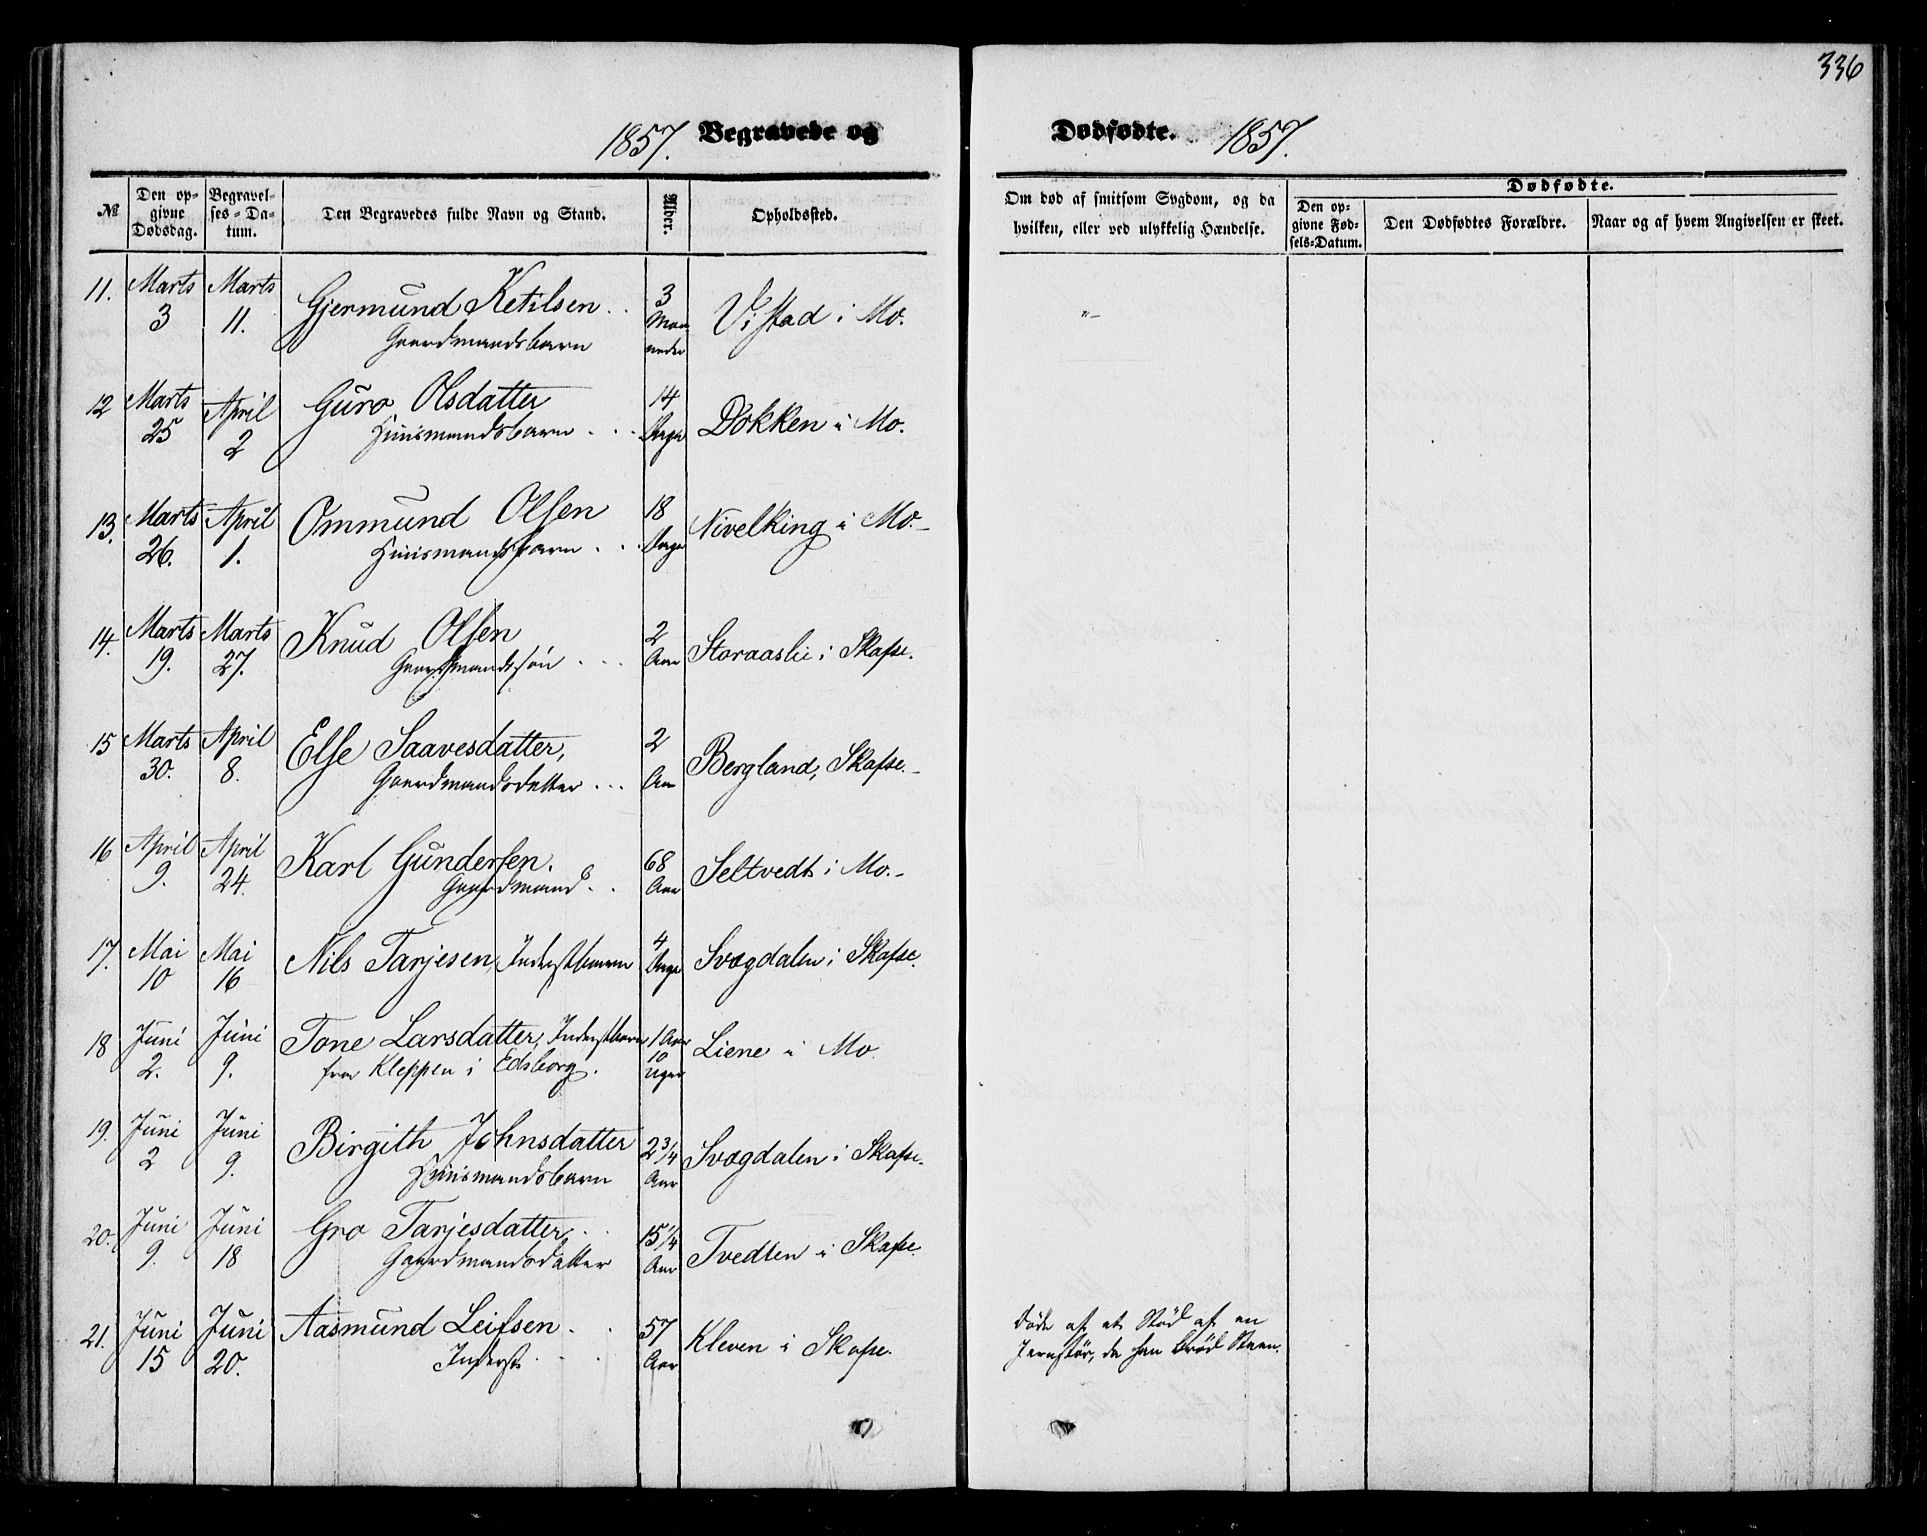 336
1857. Begravede og Dødfødte. 1857.
№ | Den opgivne Dødsdag. | Begravelses-Datum. | Den Begravedes fulde Navn og Stand. | Alder. | Opholdssted. | Om død af smitsom Sygdom, og da hvilken, eller ved ulykkelig Hændelse. | Dødfødte. Den opgivne Fødsels-Datum. | Den Dødfødtes Forældre. | Naar og af hvem Angivelsen er skeet.
11. | Marts 3 | Marts 11. | Gjermund Ketilsen. Gaardmandsbarn | 3 Maaneder | Vistad i Mo. | "–
12 | Marts 25 | April 2 | Guro Olsdatter Huusmandsbarn | 14 Dage | Dokken i Mo.
13. | Marts 26. | April 1. | Ommund Olsen Huusmandsbarn | 18 Dage | Nivelking i Mo.–
14. | Marts 19. | Marts 27. | Knud Olsen Gaardmandssøn | 2 Aar | Storaaslie i Skafse.
15 | Marts 30. | April 8. | Else Saavesdatter, Gaardmandsdatter | 2 Aar | Bergland, Skafse.–
16 | April 9. | April 24. | Karl Gundersen. Gaardmand | 68 Aar | Seltvedt i Mo.–
17. | Mai 10 | Mai 16 | Nils Tarjesen, Inderstbarn | 4 Dage | Svægdalen i Skafse.
18 | Juni 2. | Juni 9. | Tone Larsdatter, Inderstbarn fra Kleppen i Edsborg. | 1 Aar 10 Uger | Liene i Mo.
19. | Juni 2 | Juni 9. | Birgith Johnsdatter Huusmandsbarn | 2 3/4 Aar | Svægdalen i Skafse.
20. | Juni 9. | Juni 18 | Gro Tarjesdatter Gaardmandsdatter | 15 1/4 Aar | Tvedten i Skafse.
21. | Juni 15 | Juni 20. | Aasmund Leifsen Inderst | 57 Aar | Kleven i Skafse. | Døde af et Stød af en Jernstør, da han brød Steen.